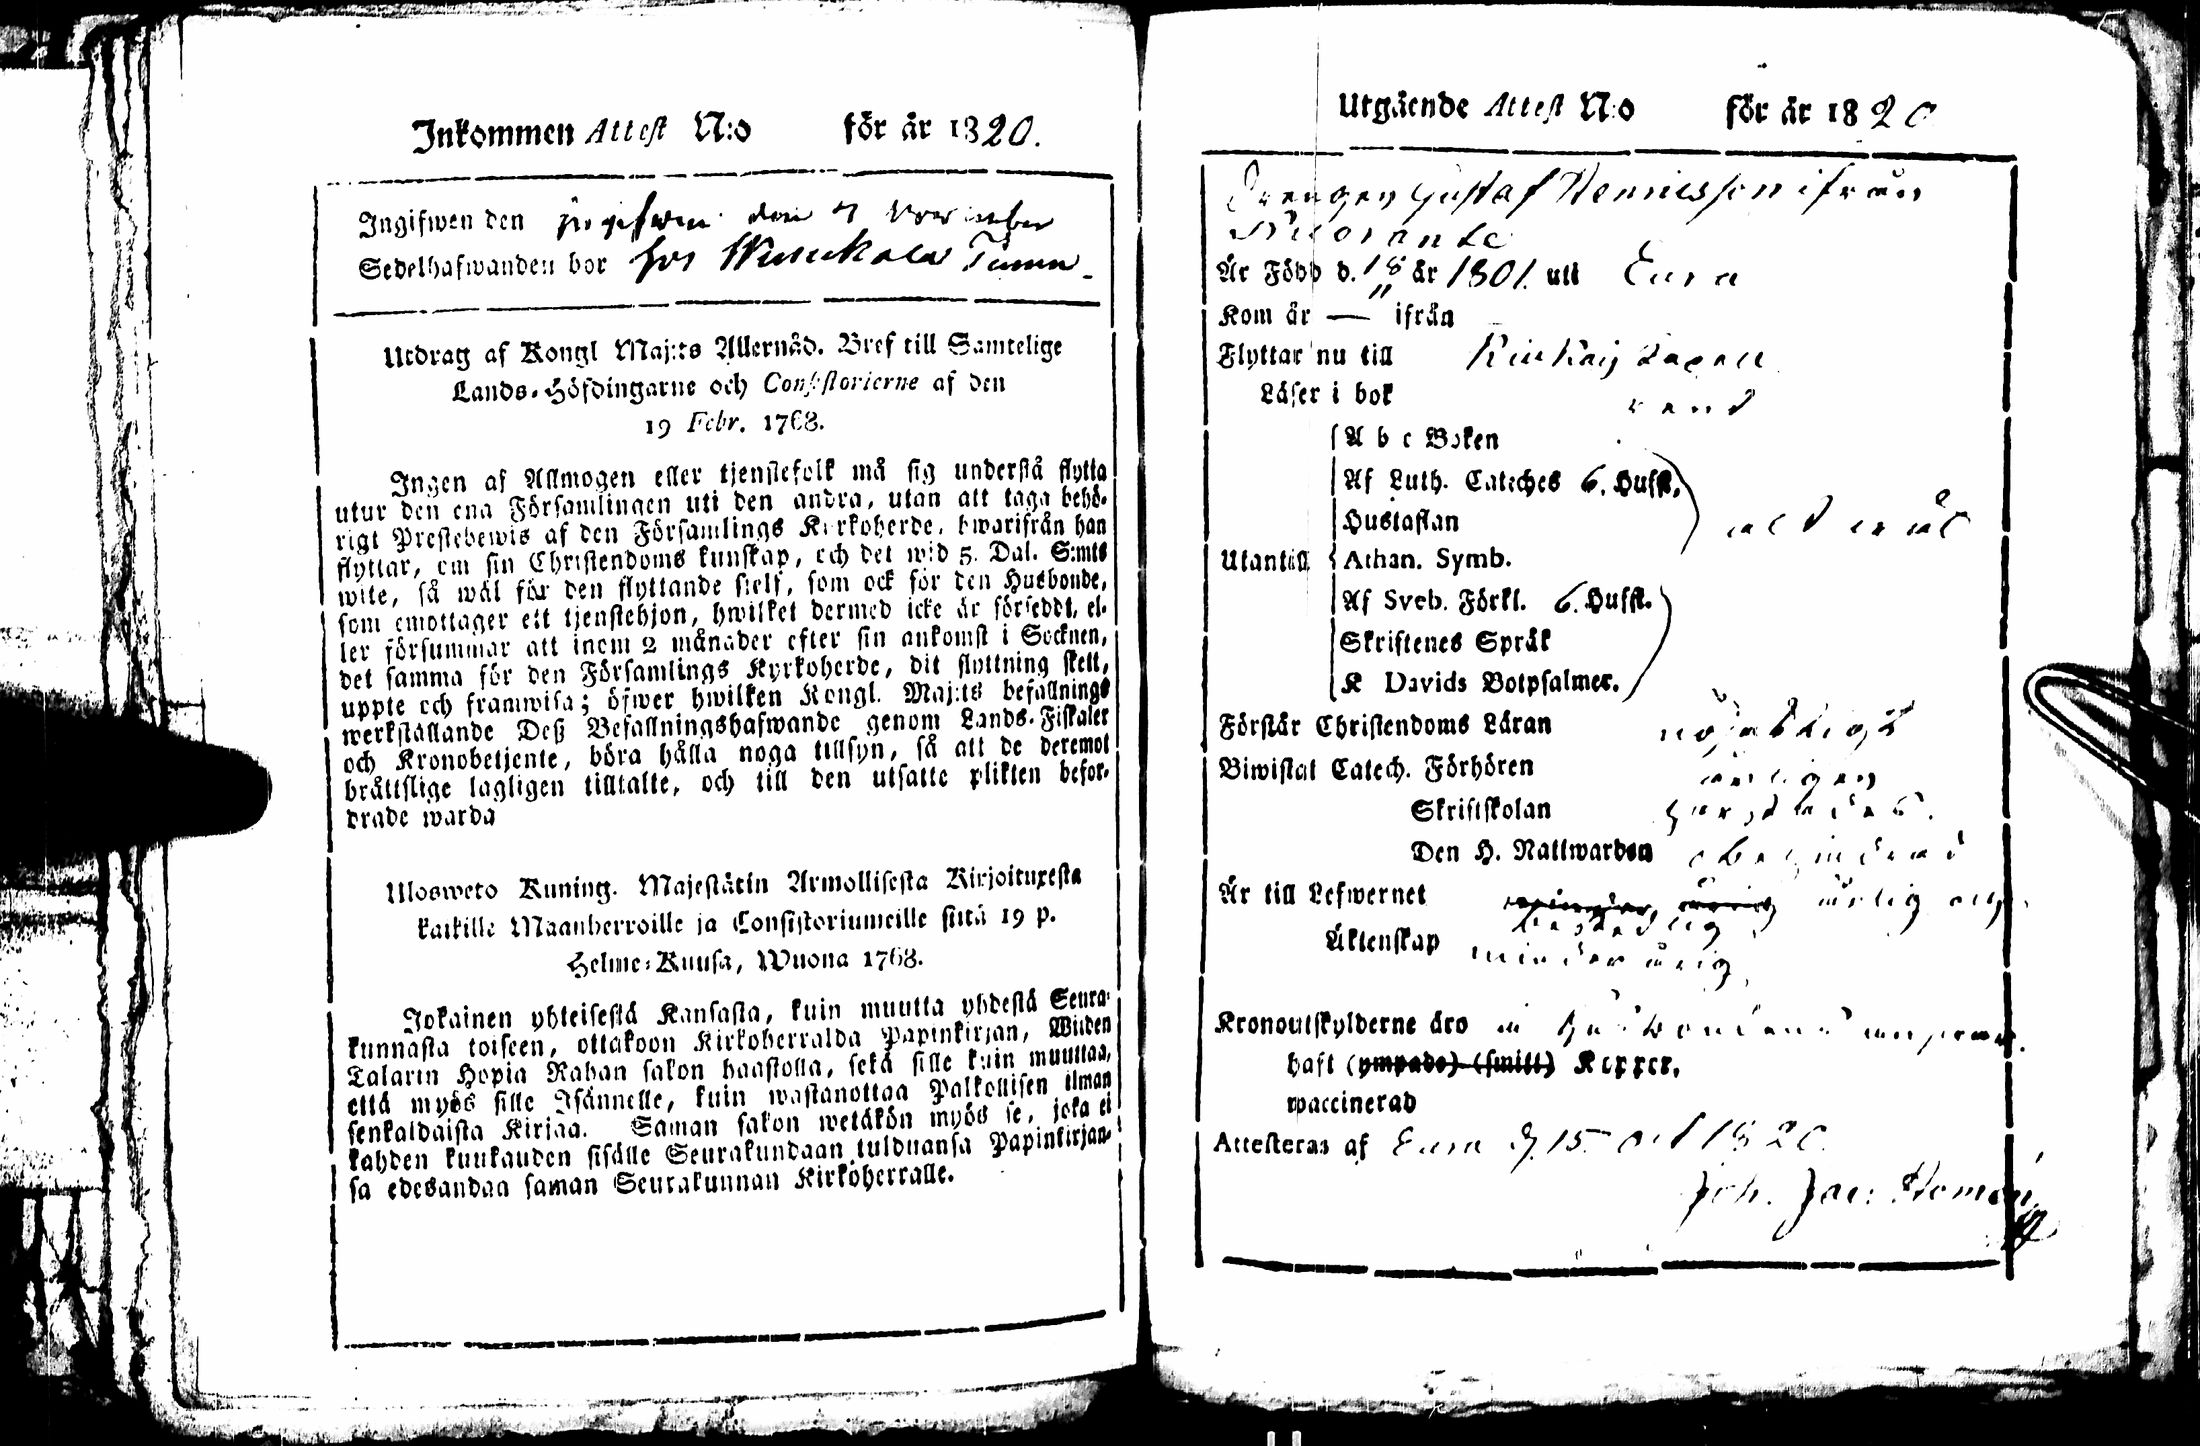 Inkommen Attest N:o för år 1820.
Ingifwen den ingifwen den 7 November
Sedelhafwanden bor hos
Utdrag af Kongl Maj:ts Allernåd. Bref till Samtelige
Lands-Höfdingarne och Consistorierne af den
19 Febr. 1768.
Ingen af Allmogen eller tjenstefolk må sig understå flytta
utur den ena Församlingen uti den andra, utan att taga behö-
rigt Prestebewis af den Församlings Kyrkoherde, hwarifrån han
flyttar, om sin Christendoms kunskap, och det wid 5. Dal. S:mts
wite, så wäl för den flyttande sjelf, som ock för den Husbonde,
som emottager ett tjenstehjon, hwilket dermed icke är försedt, el-
ler försummar att inom 2 månader efter sin ankomst i Socknen,
det samma för den Församlings Kyrkoherde, dit flyttning skett,
uppte och framwisa; öfwer hwilken Kongl. Maj:ts befallnings
werkställande Deß Befallningshafwande genom Lands-Fiskaler
och Kronobetjente, böra hålla noga tillsyn, så att de deremot
bråttslige lagligen tilltalte, och till den utsatte plikten befor-
drade warda
Ulosweto Kuning. Majestätin Armollisesta Kirjoituxesta
kaikille Maanherroille ja Consistoriumeille siitä 19 p.
Helme-Kuusa, Wuona 1768.
Jokainen yhteisestä Kansasta, kuin muutta yhdestä Seura-
kunnasta toiseen, ottakoon Kirkoherralda Papinkirjan, Wiiden
Talarin Hopia Rahan sakon haastolla, sekä sille kuin muuttaa,
että myös sille Isännelle, kuin wastanottaa Palkollisen ilman
senkaldaista Kirjaa. Saman sakon wetäkön myös se, joka ei
kahden kuukauden sisälle Seurakundaan tulduansa Papinkirjan-
sa edesandaa saman Seurakunnan Kirkoherralle.
Utgående Attest N:o för år 1820
Drengen Gustaf ifrån
Är Född d. 18 år 1801. uti Eura
Kom år — ifrån
Flyttar nu till
Läser i bok rent
A b c Boken
Af Luth. Cateches 6. Hufst.
Hustaflan
Utantill Athan. Symb.
Af Sveb. Förkl. 6. Hufst.
Skriftenes Språk
K Davids Botpsalmer.
Förstår Christendoms Läran nöjaktigt
Biwistat Catech. Förhören årligen
Skriftskolan
Den H. Nattwarden obehindrad
Är till Lefwernet ärlig och
beskedlig
Äktenskap minderårig
Kronoutskylderne äro å Husbondens answar.
haft (ympade) (smitt) Koppor.
waccinerad
Attesteras af Eura d. 15 Oct 1820.
Joh. Jac: